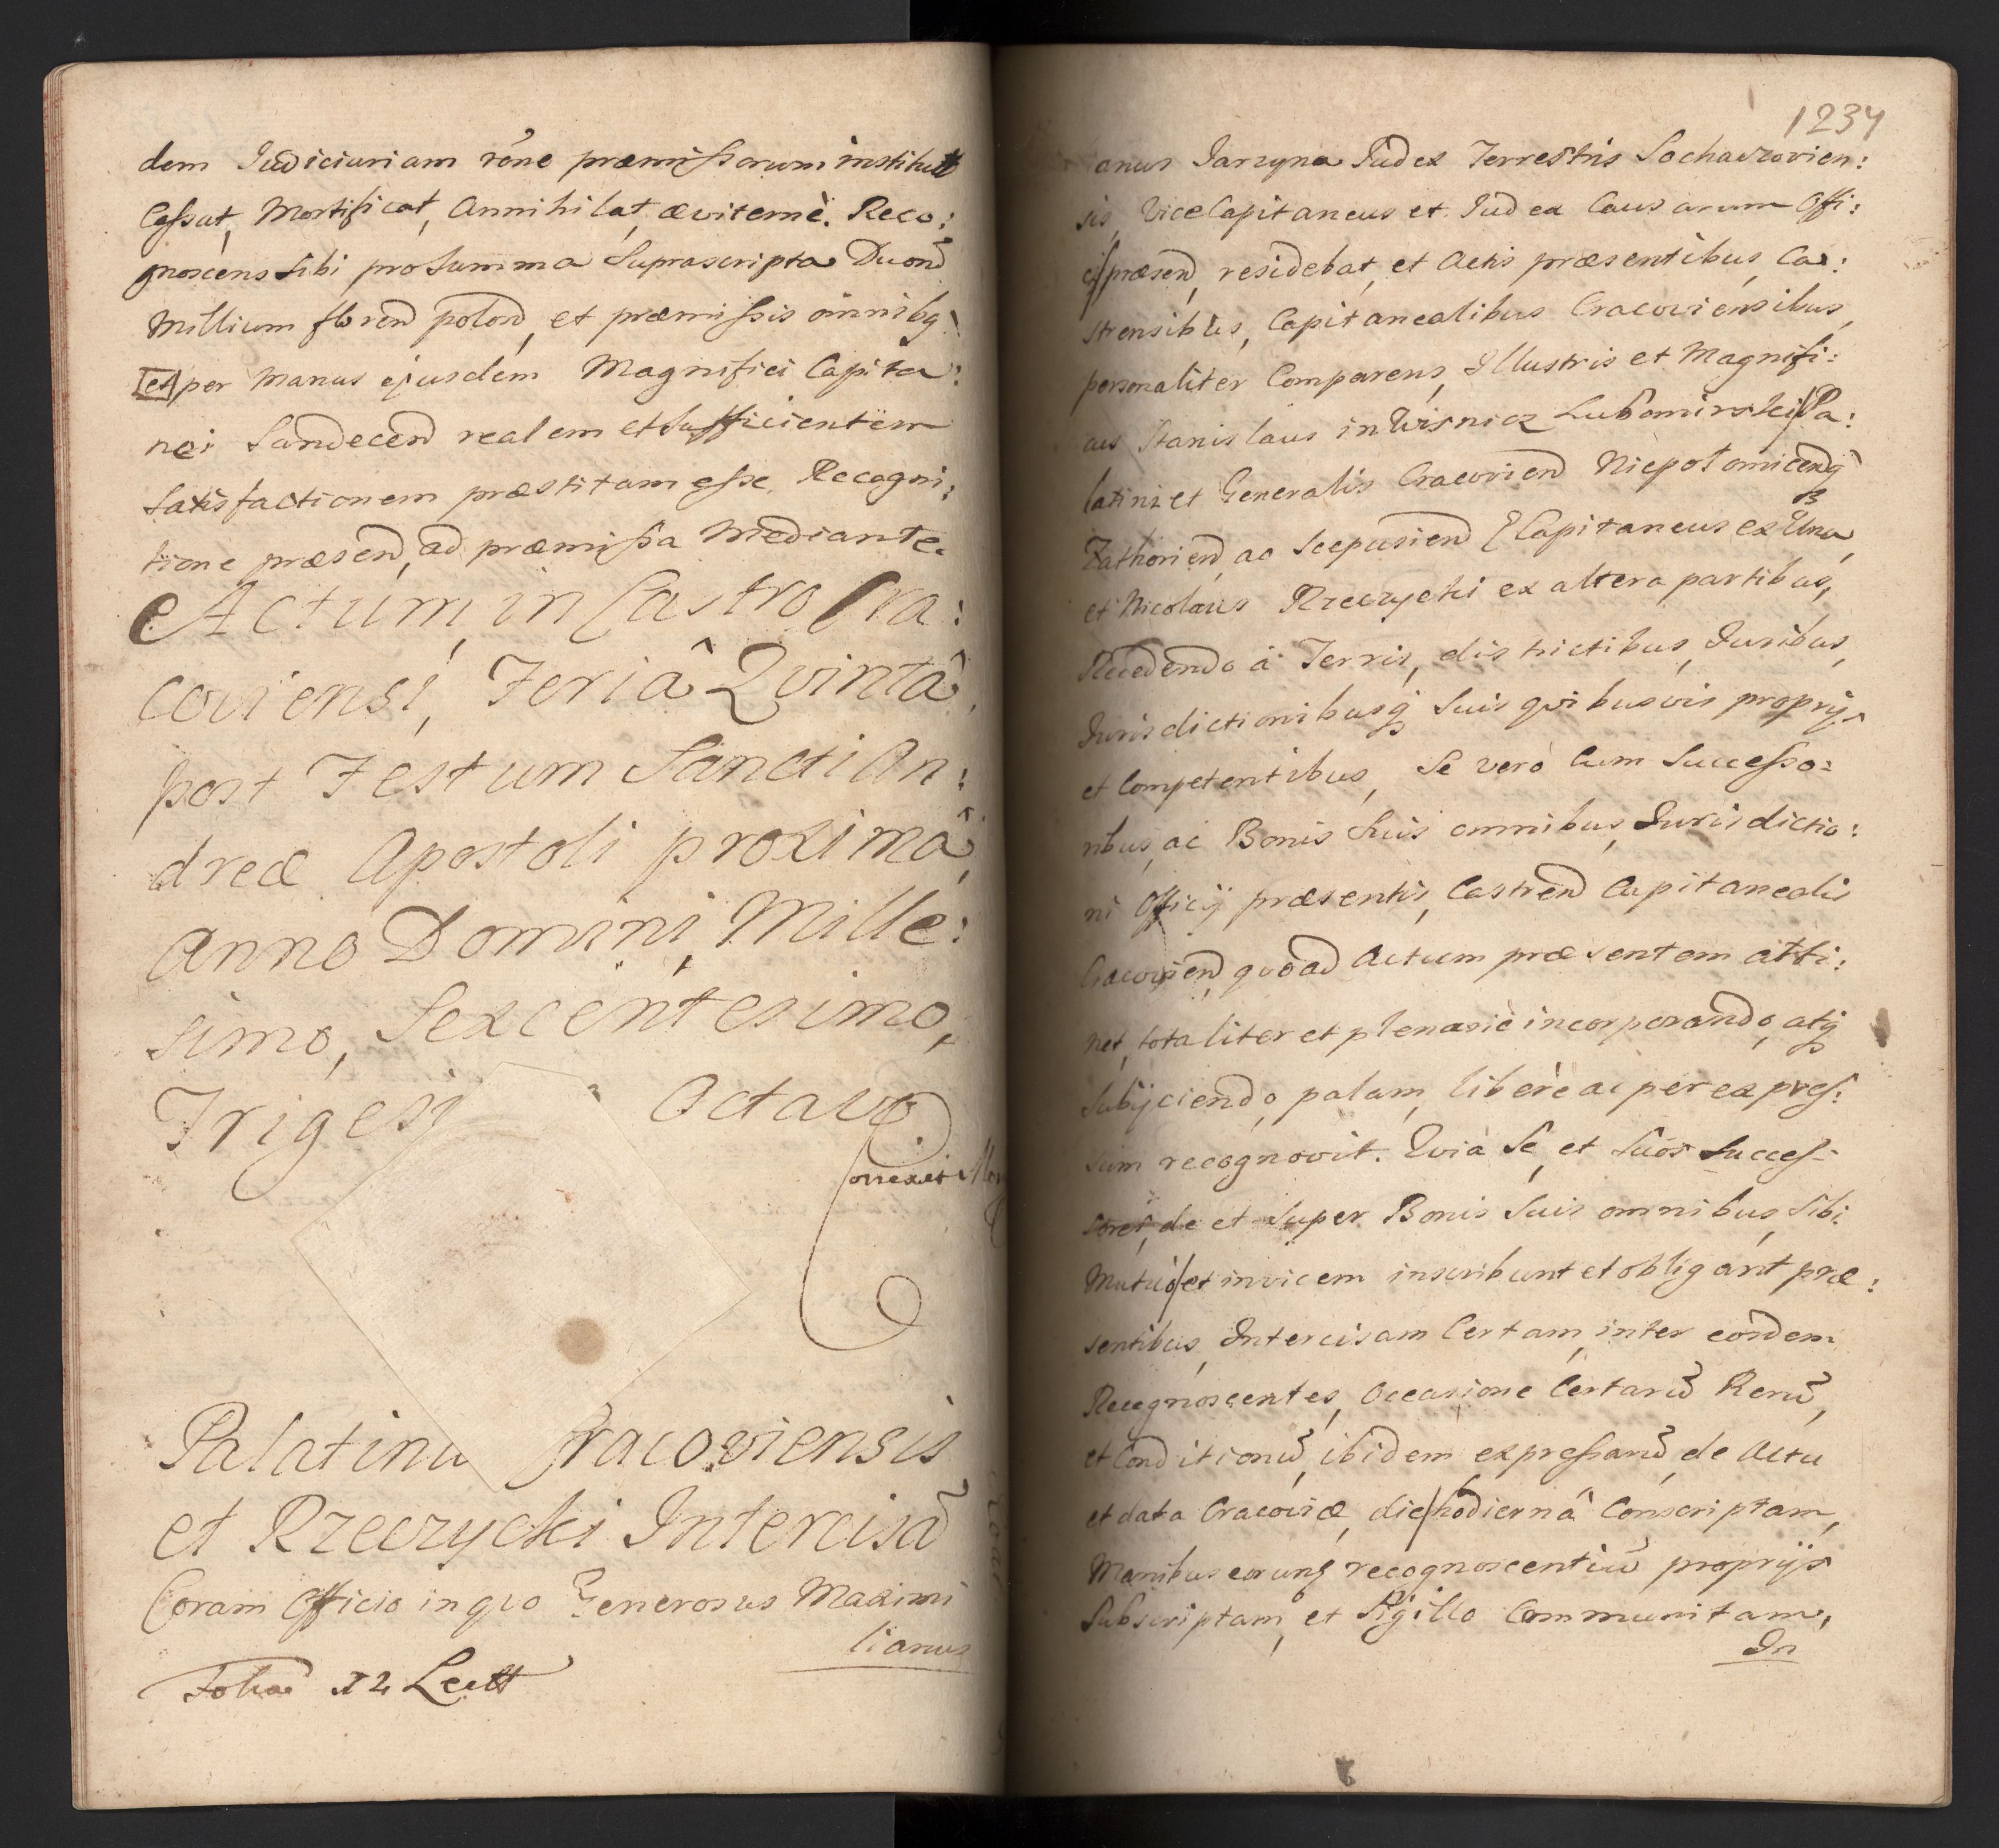 dem Iudiciariam rône præmissorum institutt
Cassat, Mortificat, Annihilat, æviternè. Reco:
gnoscens sibi pro Summa Suprascripta Duorū
Millium floren̄ polon̄, et præmissis omnibq
et per manus ejusdem Magnifici Capita:
nei Sandecen̄ realem et Sufficientem
Satisfactionem præstitam esse, Recogni:
tione præsen̄, ad præmissa Mediante.
Actum in Castro Cra:
coviensi, Feriâ Qvintâ,
post Festum Sancti An:
dreæ Apostoli proximâ,
Anno Domini, Mille:
simo, Sexcentesimo,
Trigesi Octavo.
Correxit
Palatinu Cracoviensis
et Rzeczycki Intercisā
Coram Officio in qvo Generosus Maximi
lianus
Folia 12 Lectt
1234
anus Jarzyna Iudex Terrestris Sochaczovien:
sis, ViceCapitaneus et Iudex Causarum Offi:
cij præsen̄, residebat, et Actis præsentibus, Ca:
strensibus, Capitanealibus Cracoviensibus,
personaliter Comparens, Illustris et Magnifi:
cus Stanislaus in Wisnicz Lubomirski Pa:
latini et Generalis Cracovien̄ Niepołomicenq
Zathorien̄, ac Scepusien̄ Capitaneus ex Una,
et Nicolaus Rzeczycki ex altera partibus,
Recedendo à Terris, districtibus, Iuribus,
Iurisdictionibusq Suis qvibusvis proprijs
et Competentibus, Se verò Cum Successo:
ribus, ac Bonis Suis omnibus, Iurisdictio:
ni Officij præsentis, Castren̄ Capitanealis
Cracovien̄, qvoad Actum præsentem atti:
net, totaliter et plenariè incorporando, atq
Subijciendo, palam, liberè ac per expres:
sum recognovit. Qvia Se, et Suos Succes:
sores, de et Super Bonis Suis omnibus, Sibi
Mutuò et invicem inscribunt et obligant præ:
sentibus, Intercisam Certam, inter eosdem
Recognoscentes, Occasione Certarū Rerū,
et Conditionū, ibidem expressarū, de Actu
et data Cracoviæ, die hodiernâ Conscriptam,
Manibus eorunq recognoscentiū proprijs
Subscriptam, et Sigillo Communitam,
In